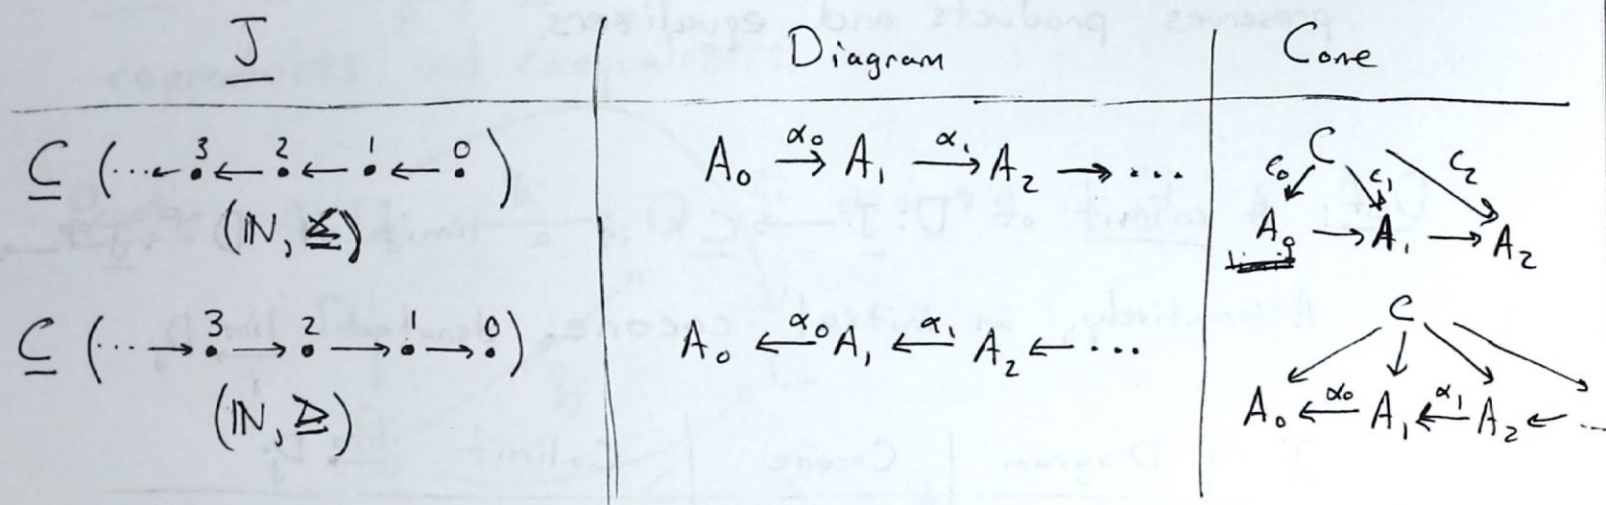 J Diagram Cone
C (⋯ ← 3 ← 2 ← 1 ← 0) A₀ →α₀ A₁ →α₁ A₂ → ⋯ C c₀ c₁ c₂
(ℕ, ≤) A₀ → A₁ → A₂
C (⋯ → 3 → 2 → 1 → 0) A₀ ←α₀ A₁ ←α₁ A₂ ← ⋯ C
(ℕ, ≥) A₀ ←α₀ A₁ ←α₁ A₂ ← ⋯